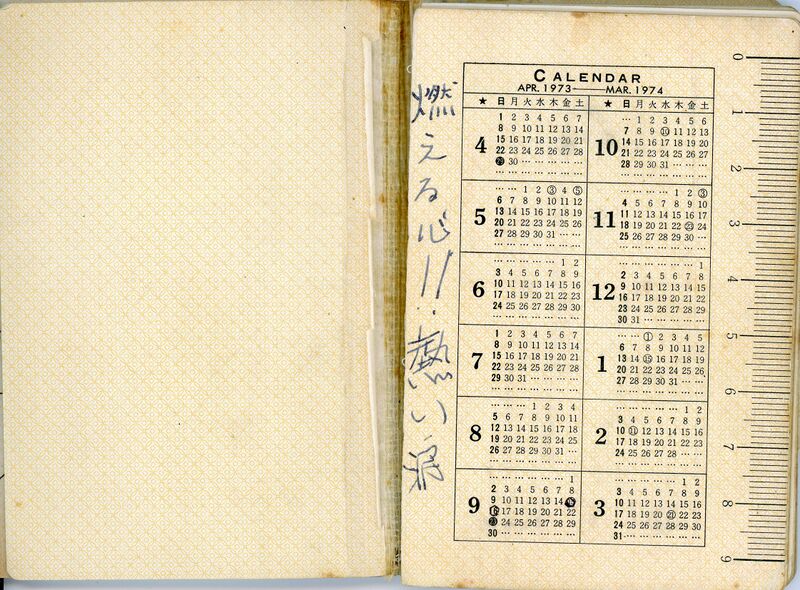 燃える心!!
熱い
CALENDAR
APR. 1973——MAR. 1974
★ 日 月 火 水 木 金 土
4
1 2 3 4 5 6 7
8 9 10 11 12 13 14
15 16 17 18 19 20 21
22 23 24 25 26 27 28
29 30 … … … … …
… … … … … … …
5
… … 1 2 3 4 5
6 7 8 9 10 11 12
13 14 15 16 17 18 19
20 21 22 23 24 25 26
27 28 29 30 31 … …
… … … … … … …
6
… … … … … 1 2
3 4 5 6 7 8 9
10 11 12 13 14 15 16
17 18 19 20 21 22 23
24 25 26 27 28 29 30
… … … … … … …
7
1 2 3 4 5 6 7
8 9 10 11 12 13 14
15 16 17 18 19 20 21
22 23 24 25 26 27 28
29 30 31 … … … …
… … … … … … …
8
… … … 1 2 3 4
5 6 7 8 9 10 11
12 13 14 15 16 17 18
19 20 21 22 23 24 25
26 27 28 29 30 31 …
… … … … … … …
9
… … … … … … 1
2 3 4 5 6 7 8
9 10 11 12 13 14 15
16 17 18 19 20 21 22
23 24 25 26 27 28 29
30 … … … … … …
★ 日 月 火 水 木 金 土
10
… 1 2 3 4 5 6
7 8 9 10 11 12 13
14 15 16 17 18 19 20
21 22 23 24 25 26 27
28 29 30 31 … … …
… … … … … … …
11
… … … … 1 2 3
4 5 6 7 8 9 10
11 12 13 14 15 16 17
18 19 20 21 22 23 24
25 26 27 28 29 30 …
… … … … … … …
12
… … … … … … 1
2 3 4 5 6 7 8
9 10 11 12 13 14 15
16 17 18 19 20 21 22
23 24 25 26 27 28 29
30 31 … … … … …
1
… … 1 2 3 4 5
6 7 8 9 10 11 12
13 14 15 16 17 18 19
20 21 22 23 24 25 26
27 28 29 30 31 … …
… … … … … … …
2
… … … … … 1 2
3 4 5 6 7 8 9
10 11 12 13 14 15 16
17 18 19 20 21 22 23
24 25 26 27 28 … …
… … … … … … …
3
… … … … … 1 2
3 4 5 6 7 8 9
10 11 12 13 14 15 16
17 18 19 20 21 22 23
24 25 26 27 28 29 30
31 … … … … … …
0
1
2
3
4
5
6
7
8
9